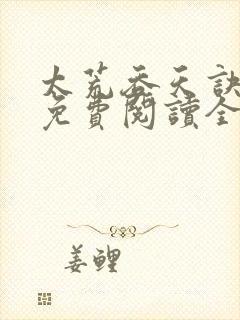 太荒吞天訣
免費閱讀全
姜鯉